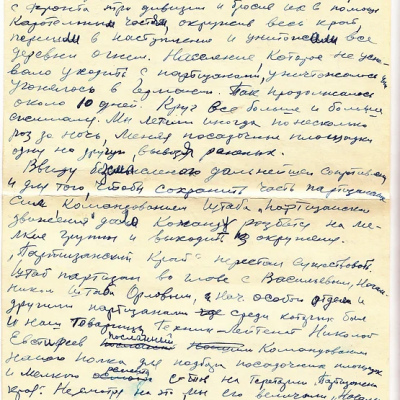 с фронта три дивизии и бросив их в помощь
Карательным частям, окружив весь край,
перешли в наступление и уничтожали все
деревни огнем. Население которое не успе-
вало уходить с партизанами, уничтожалось
угонялось в Германию. Так продолжалось
около 10 дней. Круг все больше и больше
сжимался. Мы летали иногда по несколько
раз за ночь, меняя посадочные площадки
одну на другую, вывозя раненых.
Ввиду дальнейшего сопротивления
и для того чтобы сохранить часть партизанских
сил Командованием Штаба "партизанского
движения" дана команда разбиться на ме-
лкие группы и выходить из окружения.
"Партизанский Край" перестал существовать.
Штаб партизан во главе с Васильевым, Началь-
ником штаба Орловым, и Нач особого отдела и
другими партизанами среди которых был
и наш товарищ Техник-Лейтенант Николай
Евстафьев Командованием
нашего полка для подбора посадочных площадок
и мелкого на территории "Партизанского
края". Несмотря на это мы его